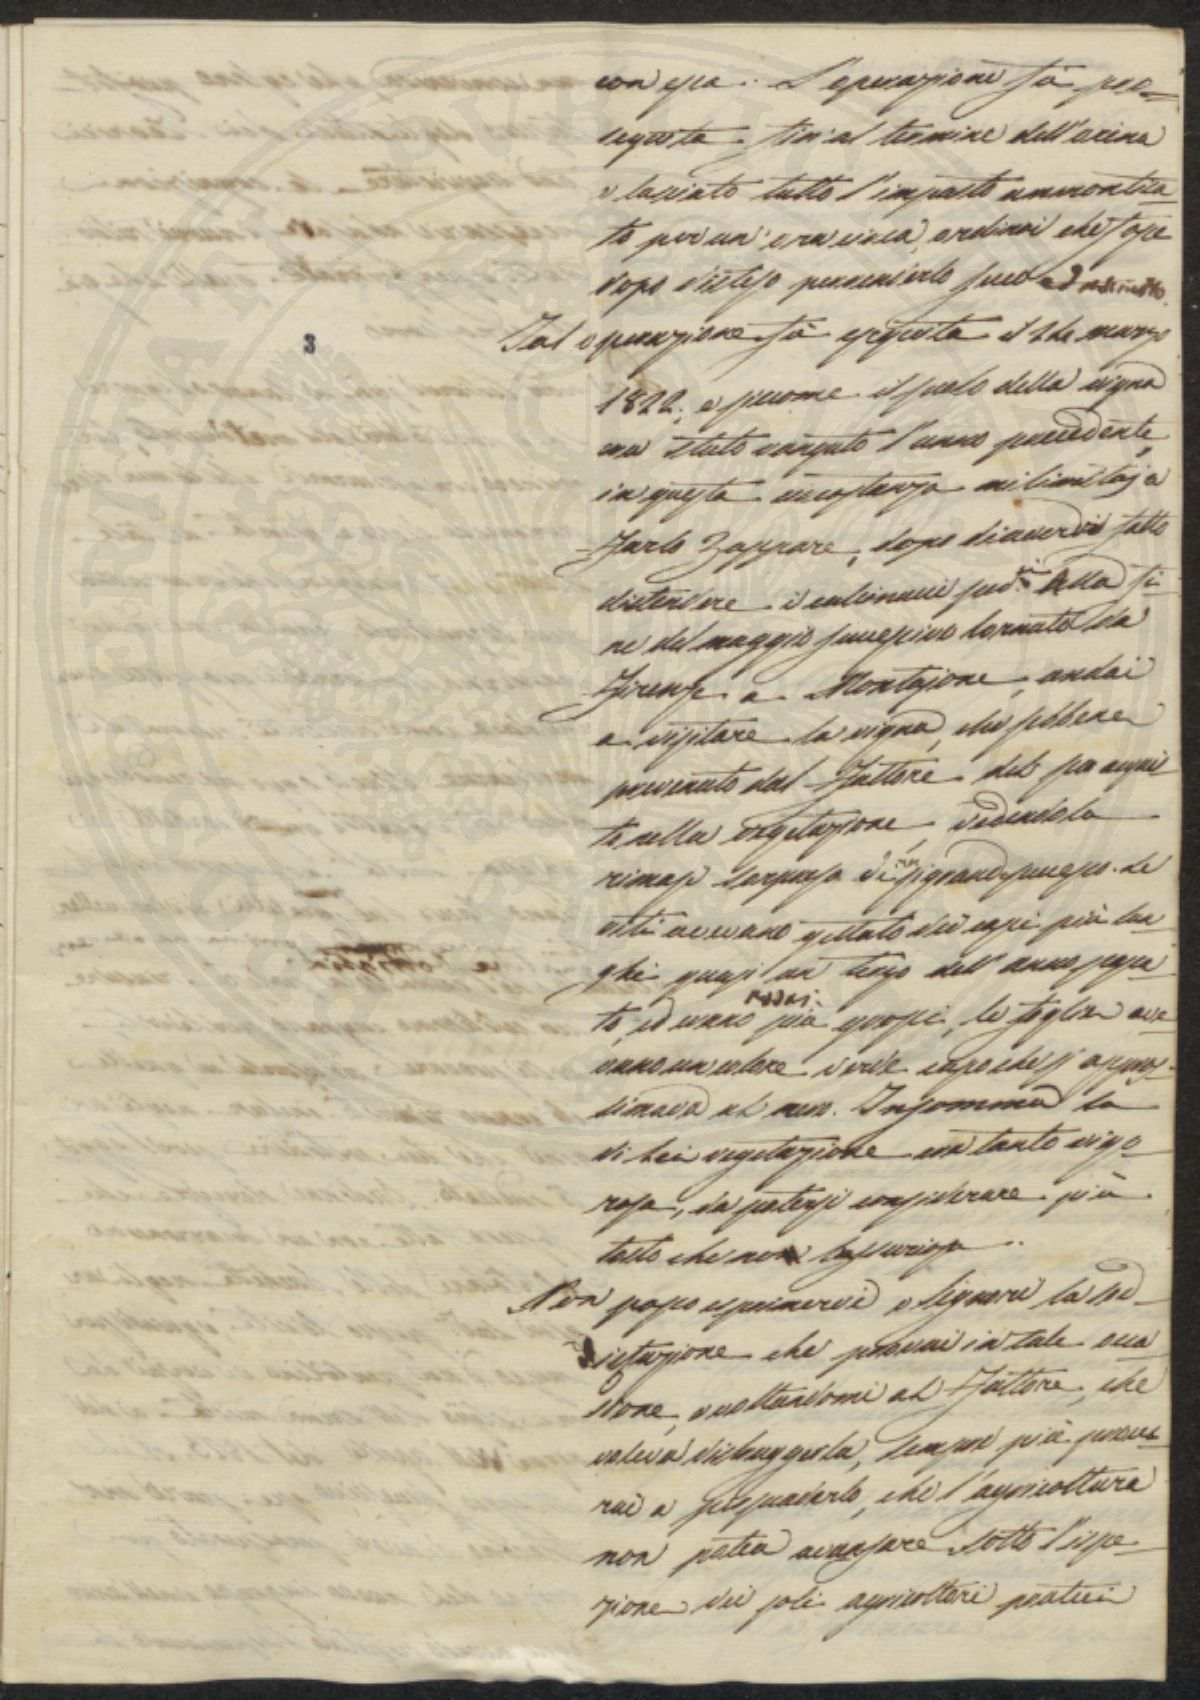 con essa. L'operazione fù pro=
seguita fin'al termine dell'arena
e lasciato tutto l'impasto ammontica
to per un'ora circa, ordinai che fosse
dopo disteso per renderlo secco ed asciutto.
Tal operazione fù eseguita il 24 marzo
3
1822; e siccome il suolo della vigna
era stato vangato l'anno precedente,
in questa circostanza mi limitai a
farlo Zappare, dopo di avervi fatto
distendere i calcinacci sud.ti Alla fi
ne del maggio successivo tornato da
Firenze a Montajone, andai
a visitare la vigna, che sebbene
prevenuto dal Fattore del
nella vegetazione, vedendola
rimasi sorpreso di un sì grande successo. Le
viti avevano gettato dei capi più lun
ghi quasi un terzo dell'anno passa
to, ed erano assai più grossi, le foglie ave
vano un colore verde cupo che s'appros=
simava al nero. Insomma la
di lei vegetazione era tanto vigo
rosa, da potersi considerare più
tosto che non lussuriosa..
Non posso esprimervi o Signori la sod=
disfazione che provai in tale occa
sione, e voltandomi al Fattore, che
voleva distruggerla, sempre più procu=
rai a persuaderlo, che l'agricoltura
non potea avanzare sotto l'ispe=
zione dei soli agricoltori pratici